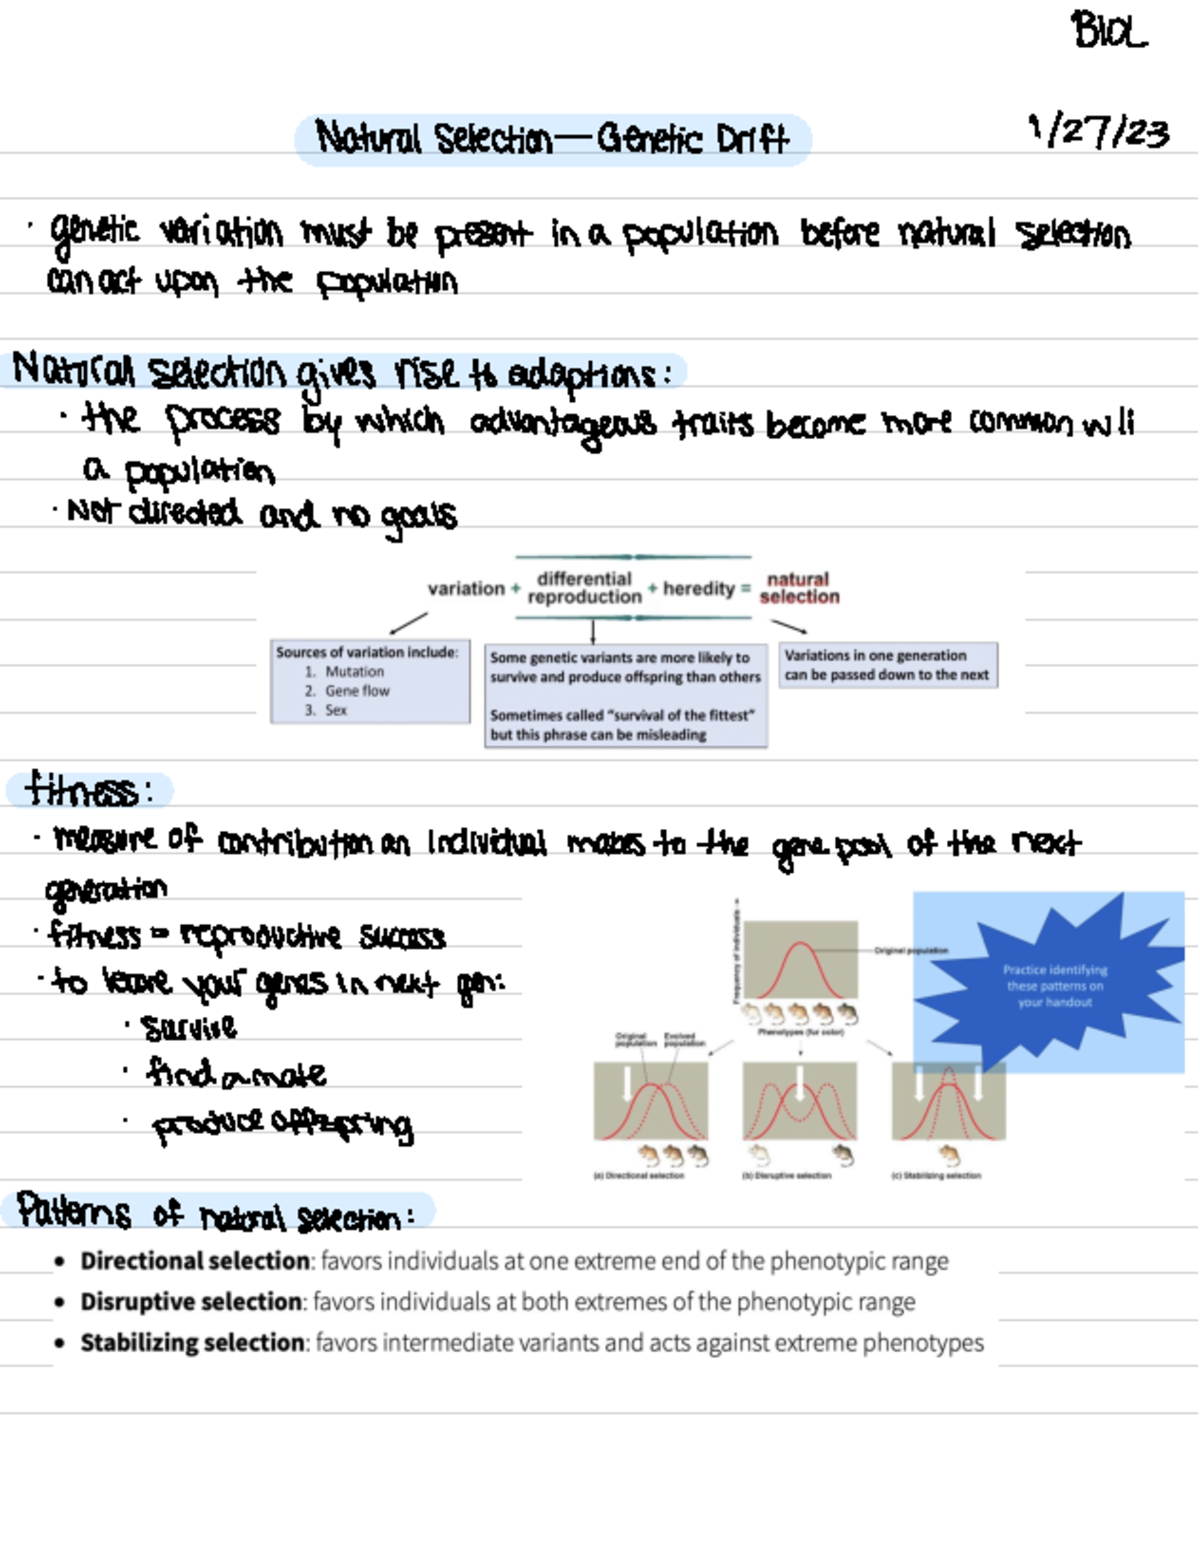 BIOL
Natural Selection—Genetic Drift
1/27/23
· genetic variation must be present in a population before natural selection
can act upon the population
Natural selection gives rise to adaptions:
· the process by which advantageous traits become more common w/i
a population
· Not directed and no goals
variation + differential reproduction + heredity = natural selection
Sources of variation include:
1. Mutation
2. Gene flow
3. Sex
Some genetic variants are more likely to
survive and produce offspring than others
Sometimes called “survival of the fittest”
but this phrase can be misleading
Variations in one generation
can be passed down to the next
fitness:
· measure of contribution an individual makes to the gene pool of the next
generation
· fitness = reproductive success
· to leave your genes in next gen:
· survive
· find a mate
· produce offspring
Frequency of individuals →
Original population
Phenotypes (fur color)
Practice identifying
these patterns on
your handout
Original
population
Evolved
population
(a) Directional selection
(b) Disruptive selection
(c) Stabilizing selection
Patterns of natural selection:
• Directional selection: favors individuals at one extreme end of the phenotypic range
• Disruptive selection: favors individuals at both extremes of the phenotypic range
• Stabilizing selection: favors intermediate variants and acts against extreme phenotypes